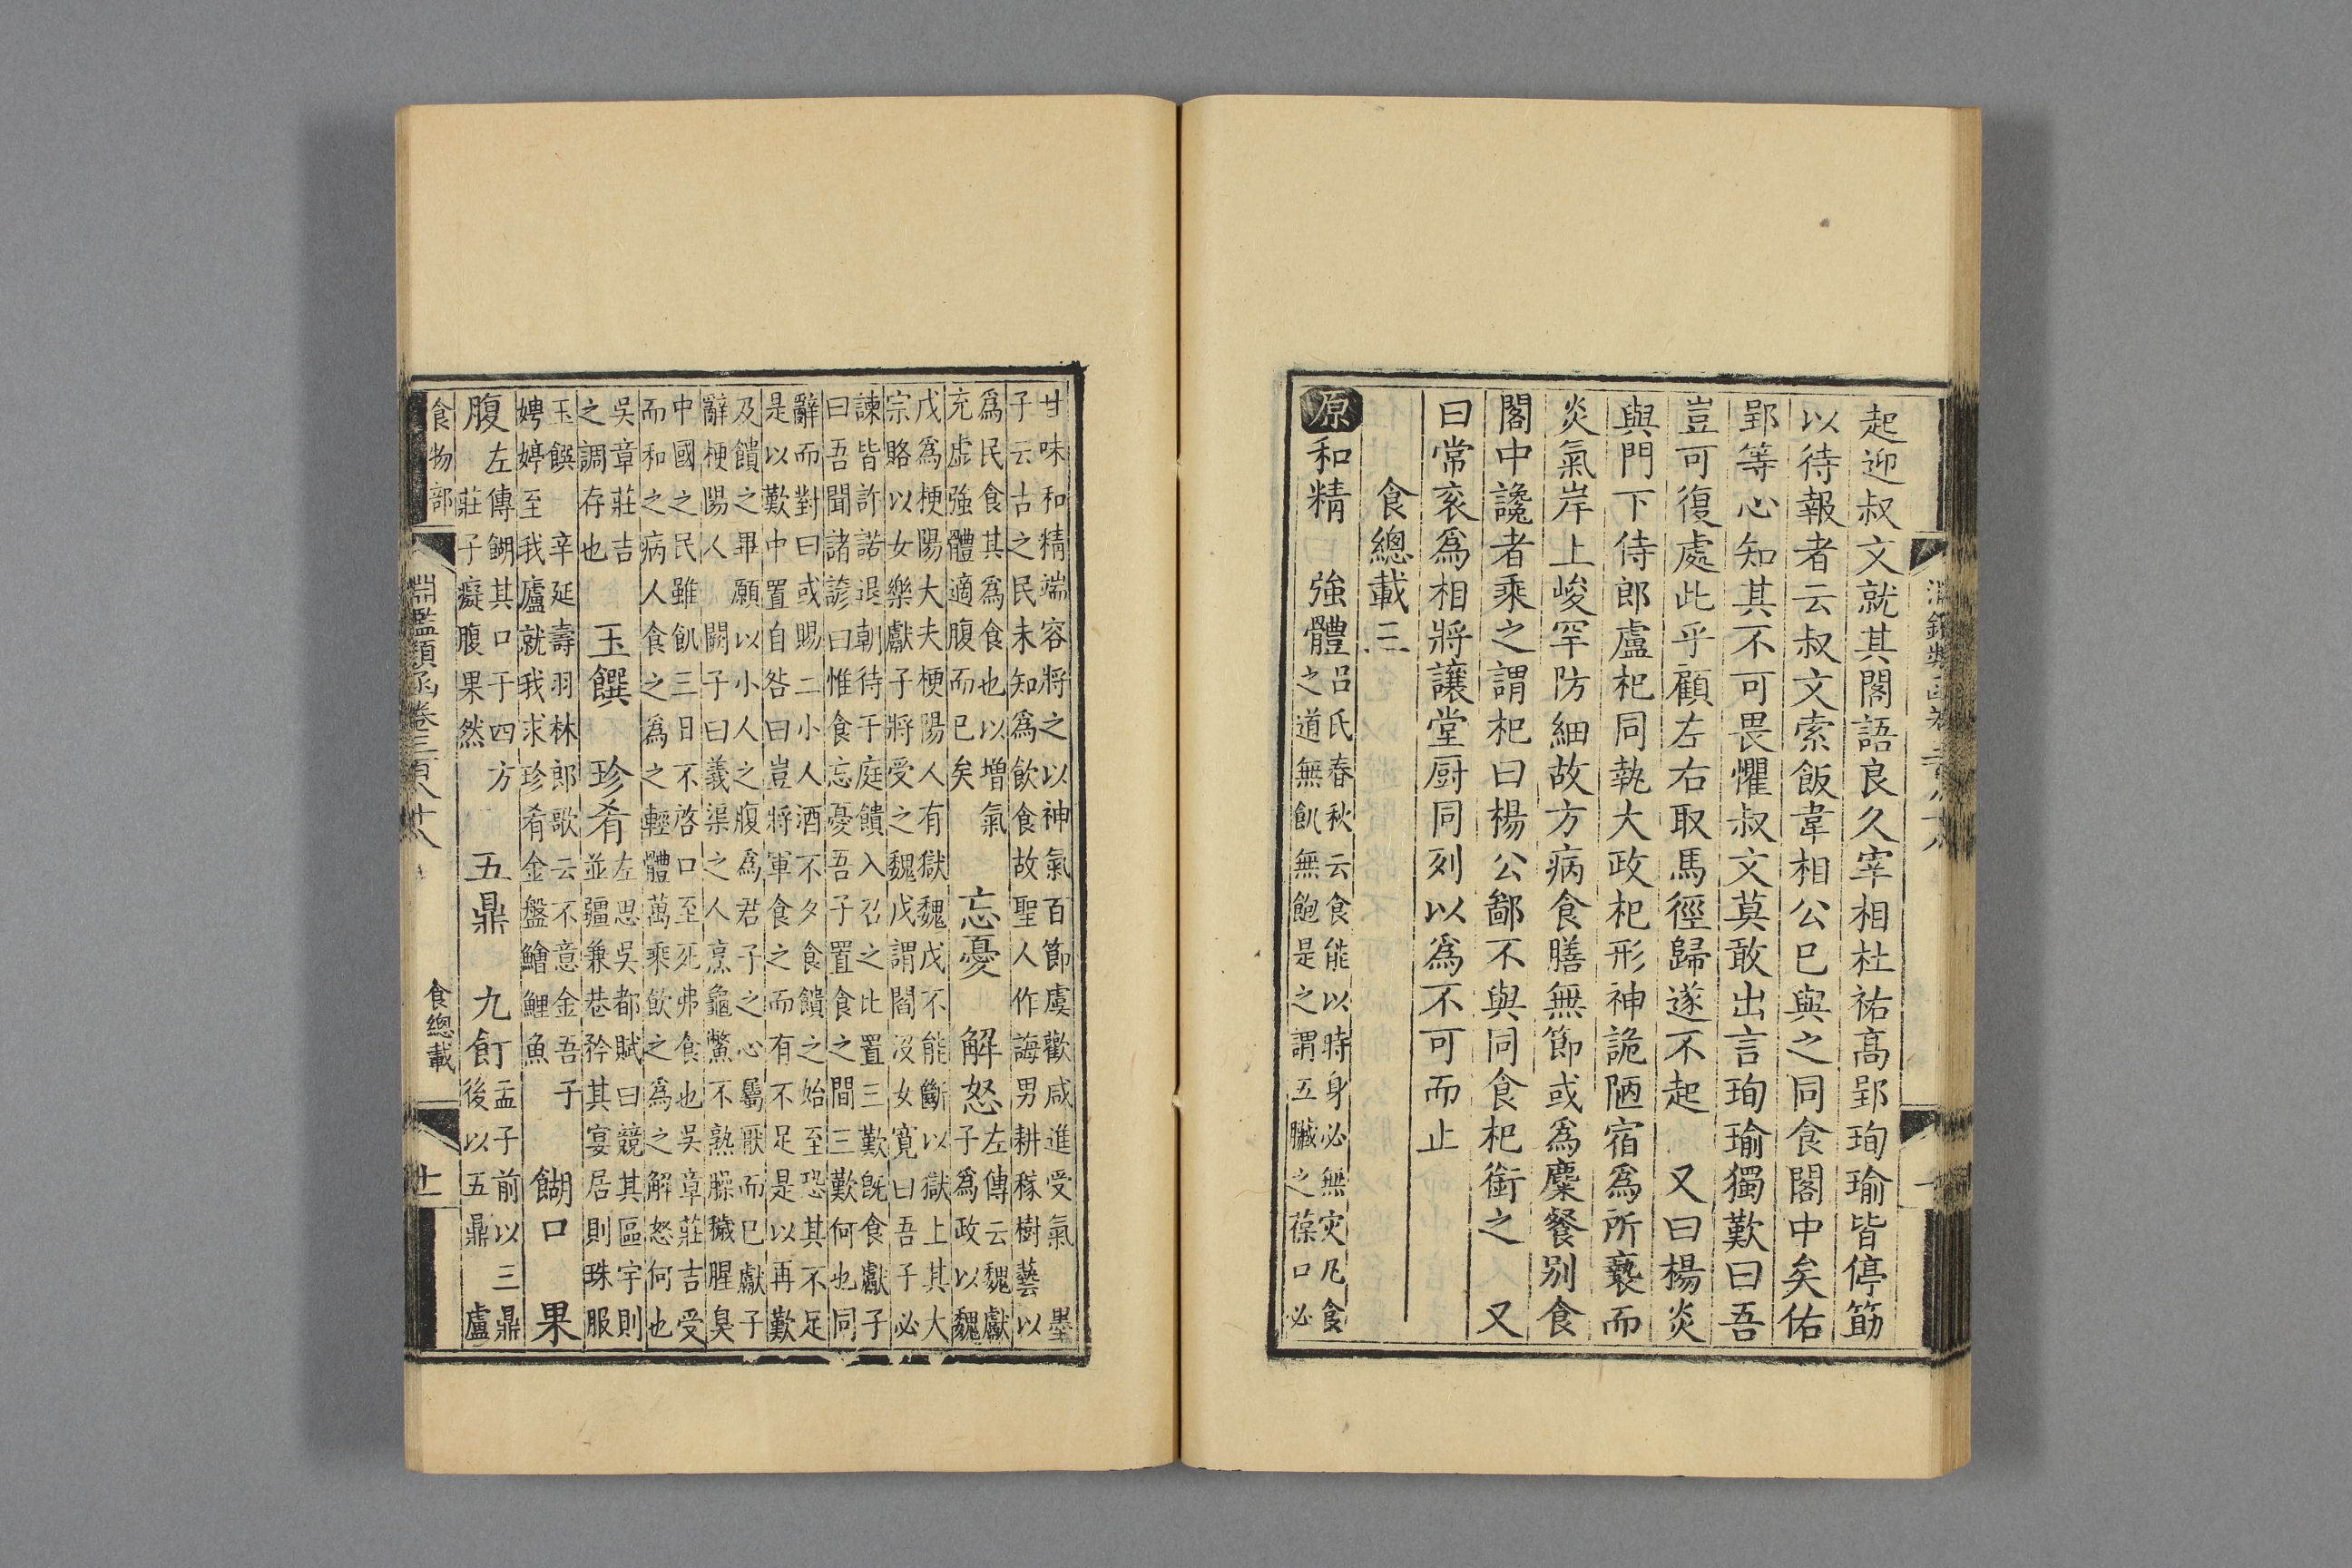 起迎叔文就其閣語良久宰相杜祐高郢珣瑜皆停筯
以待報者云叔文索飯韋相公巳與之同食閣中矣佑
郢等心知其不可畏懼叔文莫敢出言珣瑜獨歎曰吾
豈可復處此乎顧左右取馬徑歸遂不起　又曰楊炎
與門下侍郎盧杞同執大政杞形神詭陋宿爲所褻而
炎氣岸上峻罕防細故方病食膳無節或爲糜餐别食
閣中讒者乘之謂杞曰楊公鄙不與同食杞銜之　又
曰常衮爲相將讓堂厨同列以爲不可而止
食總載三
原 和精　強體
呂氏春秋云食能以時身必無灾凡食
之道無飢無飽是之謂五臟之葆口必
甘味和精端容將之以神氣百節虞歡咸進受氣　墨
子云古之民未知爲飲食故聖人作誨男耕稼樹藝以
爲民食其爲食也以增氣
充虛強體適腹而已矣
忘憂　解怒
左傳云魏獻
子爲政以魏
戊爲梗陽大夫梗陽人有獄魏戊不能斷以獄上其大
宗賂以女樂獻子將受之魏戊謂閻沒女寬曰吾子必
諫皆許諾退朝待于庭饋入召之比置三歎旣食獻子
曰吾聞諸諺曰惟食忘憂吾子置食之間三歎何也同
辭而對曰或賜二小人酒不夕食饋之始至恐其不足
是以歎中置自咎曰豈將軍食之而有不足是以再歎
及饋之畢願以小人之腹爲君子之心屬厭而已獻子
辭梗陽人　闕子曰義渠之人烹龜鱉不熟臊穢腥臭
中國之民雖飢三日不啓口至死弗食也吳章莊吉受
而和之病人食之爲之輕體萬乘飲之爲之解怒何也
吳章莊吉
之調存也
玉饌　珍肴
左思吳都賦曰競其區宇則
並疆兼巷矜其宴居則珠服
玉饌　辛延壽羽林郎歌云不意金吾子
娉婷至我廬就我求珍肴金盤鱠鯉魚
餬口　果
腹
左傳餬其口于四方
莊子癡腹果然
五鼎　九飣
孟子前以三鼎
後以五鼎　盧
食物部
淵鑑類函卷三百八十八
食總載
十一